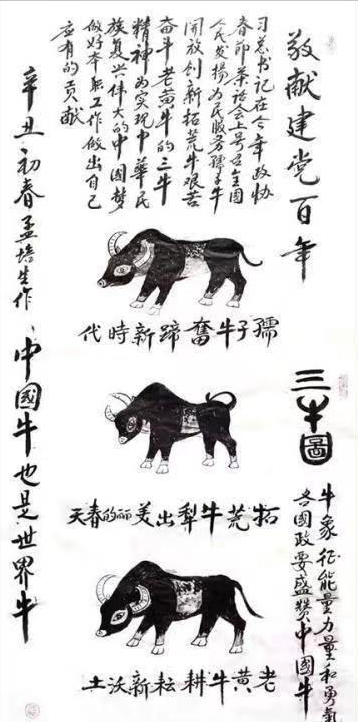 敬献建党百年
三牛圖
牛象征能量力量和勇氣
各國政要盛赞中國牛
习总书记在今年政协
春节茶话会上号召全國
人民发揚为民服务孺子牛
開放创新拓荒牛艰苦
奋斗老黄牛的三牛
精神为实現中華民
族复兴伟大的中國梦
做好本职工作做出自己
应有的贡献
孺子牛奮蹄新時代
拓荒牛犁出美丽的春天
老黄牛耕耘新沃土
辛丑初春孟培生作、中國牛也是世界牛